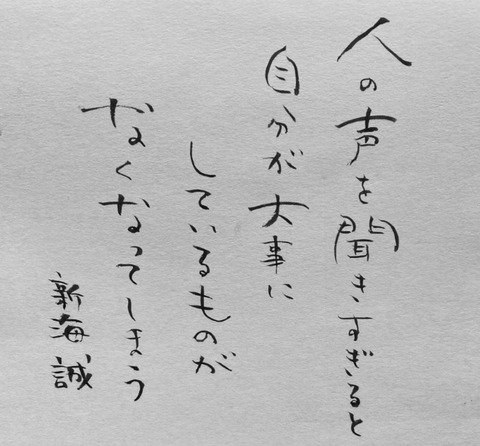 人の声を聞きすぎると
自分が大事に
しているものが
なくなってしまう
新海誠